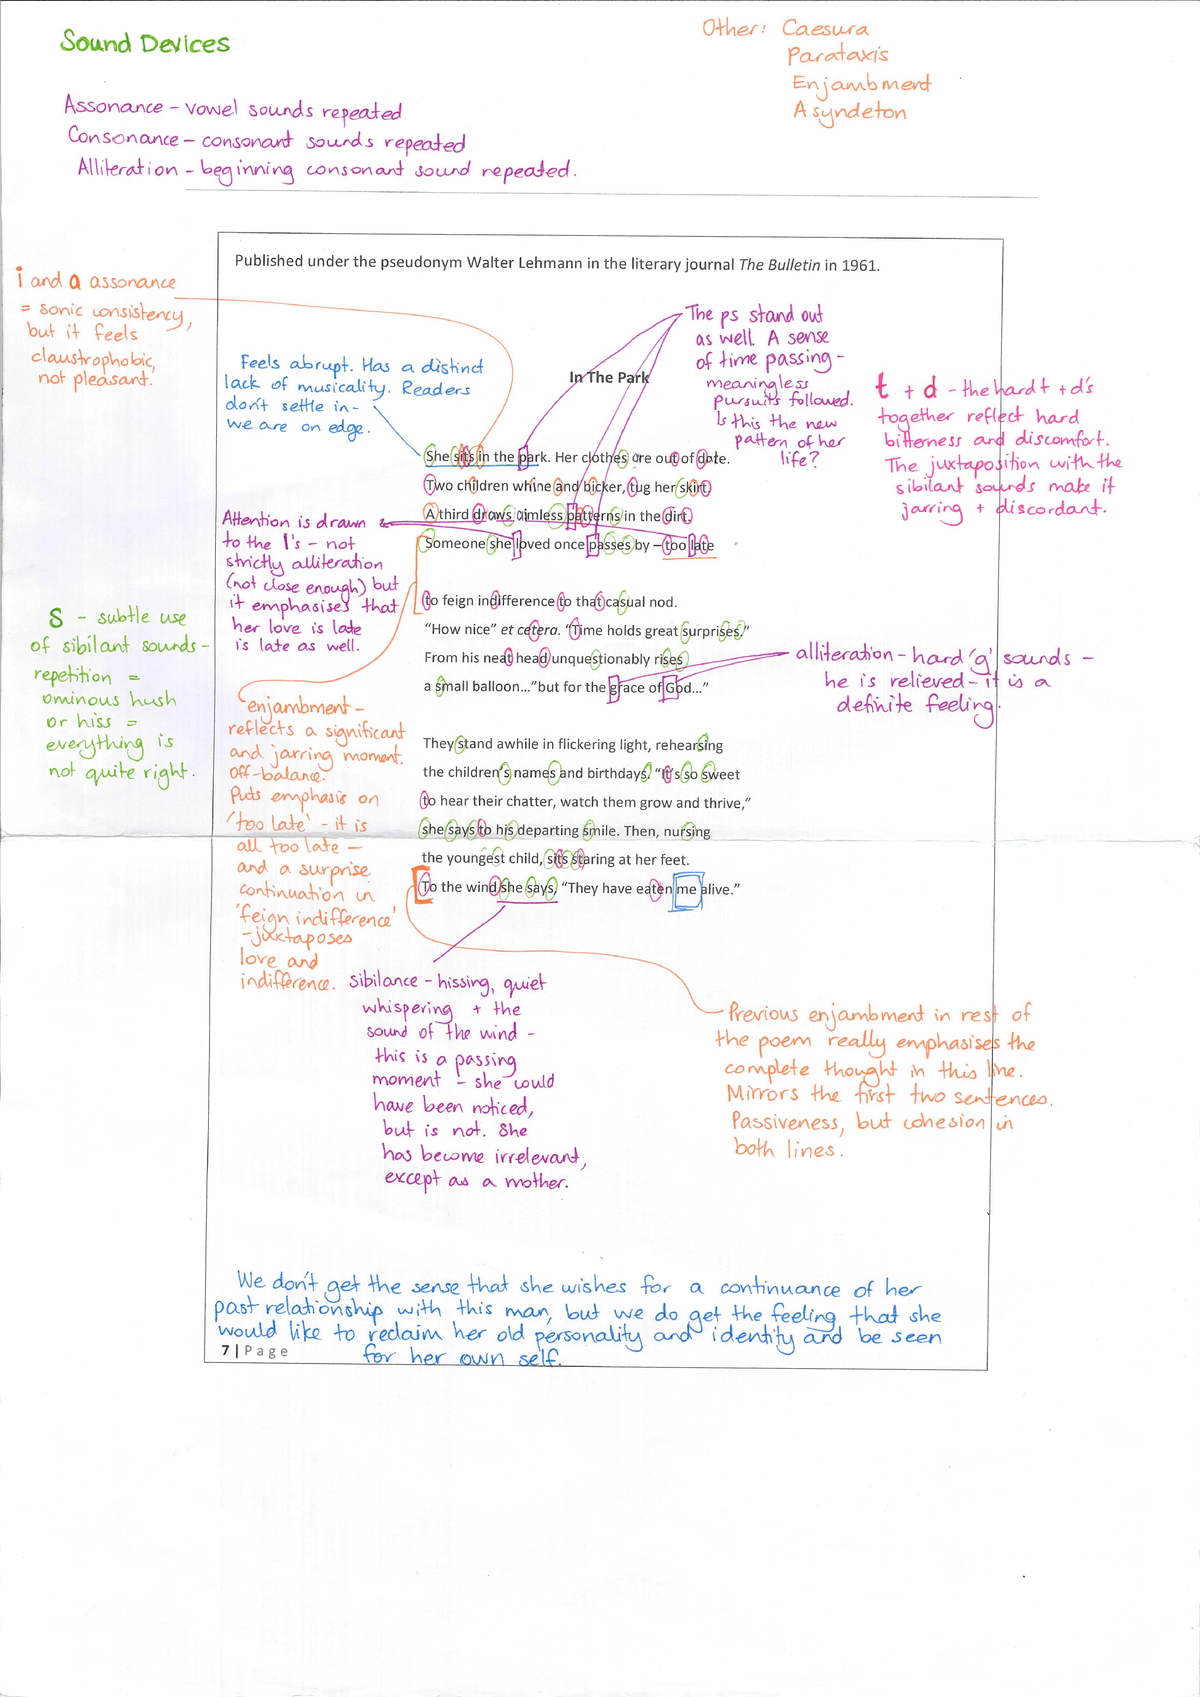 Sound Devices
Other: Caesura
Parataxis
Enjambment
Asyndeton
Assonance – vowel sounds repeated
Consonance – consonant sounds repeated
Alliteration – beginning consonant sound repeated.
Published under the pseudonym Walter Lehmann in the literary journal The Bulletin in 1961.
i and a assonance
= sonic consistency,
but it feels
claustrophobic,
not pleasant.
Feels abrupt. Has a distinct
lack of musicality. Readers
don't settle in-
we are on edge.
The ps stand out
as well. A sense
of time passing -
meaningless
pursuits followed.
Is this the new
pattern of her
life?
t + d - the hard t + d's
together reflect hard
bitterness and discomfort.
The juxtaposition with the
sibilant sounds make it
jarring + discordant.
In The Park
She sits in the park. Her clothes are out of date.
Two children whine and bicker, tug her skirt.
A third draws aimless patterns in the dirt.
Someone she loved once passes by – too late
to feign indifference to that casual nod.
“How nice” et cetera. “Time holds great surprises.”
From his neat head unquestionably rises
a small balloon…”but for the grace of God…”
They stand awhile in flickering light, rehearsing
the children’s names and birthdays. “It’s so sweet
to hear their chatter, watch them grow and thrive,”
she says to his departing smile. Then, nursing
the youngest child, sits staring at her feet.
To the wind she says, “They have eaten me alive.”
Attention is drawn
to the l's - not
strictly alliteration
(not close enough) but
it emphasises that
her love is late
is late as well.
S - subtle use
of sibilant sounds-
repetition =
ominous hush
or hiss =
everything is
not quite right.
alliteration - hard 'g' sounds -
he is relieved - it is a
definite feeling.
enjambment-
reflects a significant
and jarring moment.
off-balance.
Puts emphasis on
'too late' - it is
all too late -
and a surprise
continuation in
'feign indifference'
-juxtaposes
love and
indifference.
sibilance - hissing, quiet
whispering + the
sound of the wind -
this is a passing
moment - she could
have been noticed,
but is not. She
has become irrelevant,
except as a mother.
Previous enjambment in rest of
the poem really emphasises the
complete thought in this line.
Mirrors the first two sentences.
Passiveness, but cohesion in
both lines.
We don't get the sense that she wishes for a continuance of her
past relationship with this man, but we do get the feeling that she
would like to reclaim her old personality and identity and be seen
for her own self.
7 | Page